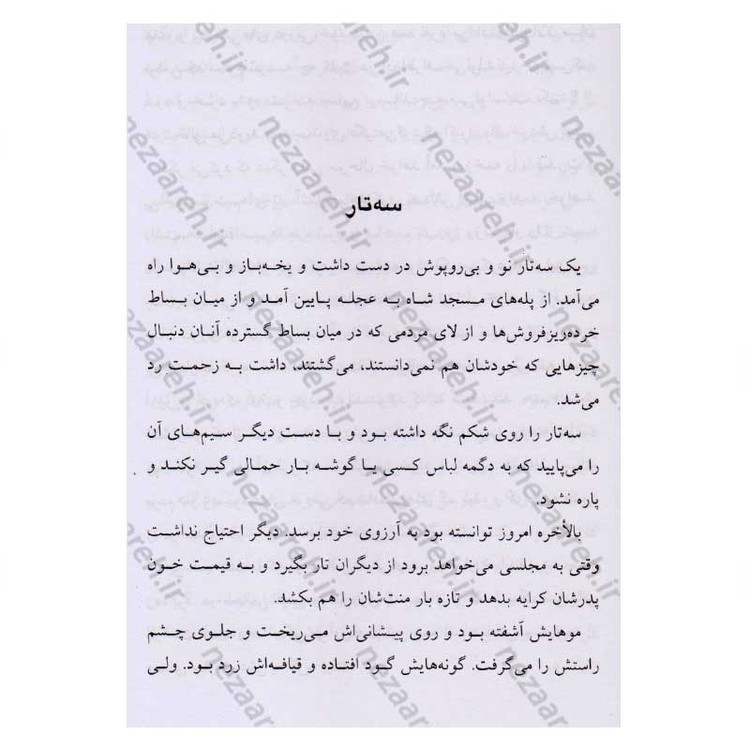 سه‌تار
یک سه‌تار نو و بی‌روپوش در دست داشت و یخه‌باز و بی‌هوا راه
می‌آمد. از پله‌های مسجد شاه به عجله پایین آمد و از میان بساط
خرده‌ریزفروش‌ها و از لای مردمی که در میان بساط گسترده آنان دنبال
چیزهایی که خودشان هم نمی‌دانستند، می‌گشتند، داشت به زحمت رد
می‌شد.
سه‌تار را روی شکم نگه داشته بود و با دست دیگر سیم‌های آن
را می‌پایید که به دگمه لباس کسی یا گوشه بار حمالی گیر نکند و
پاره نشود.
بالأخره امروز توانسته بود به آرزوی خود برسد. دیگر احتیاج نداشت
وقتی به مجلسی می‌خواهد برود از دیگران تار بگیرد و به قیمت خون
پدرشان کرایه بدهد و تازه بار منت‌شان را هم بکشد.
موهایش آشفته بود و روی پیشانی‌اش می‌ریخت و جلوی چشم
راستش را می‌گرفت. گونه‌هایش گود افتاده و قیافه‌اش زرد بود. ولی
nezaareh.ir